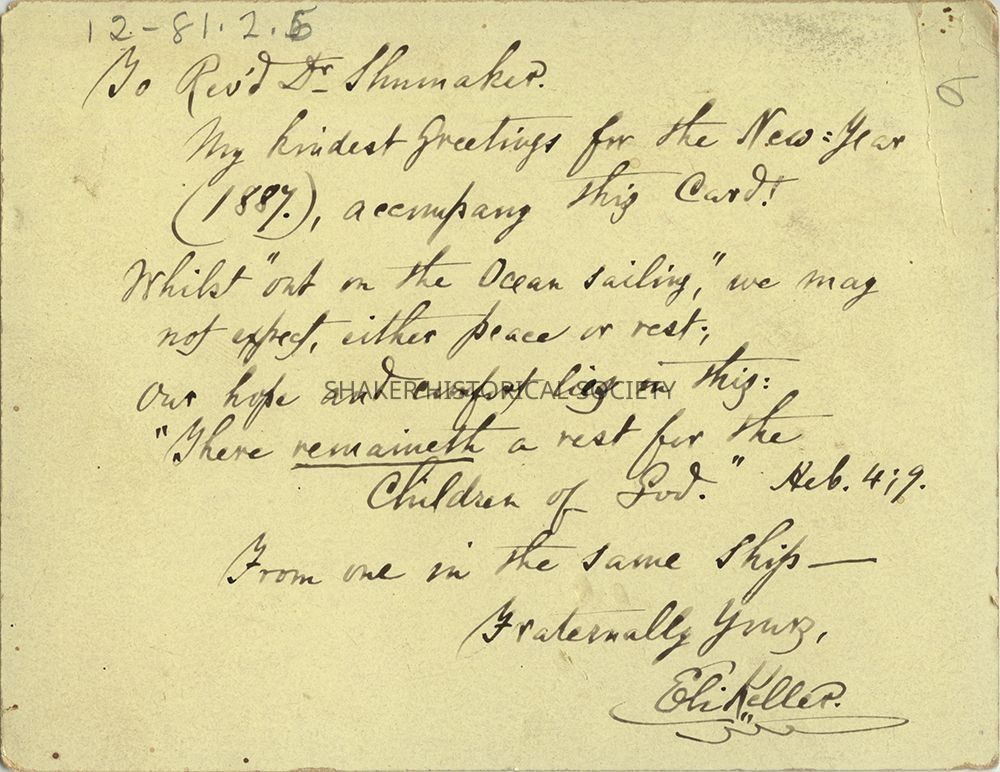 12-81.2.5
6
To Rev'd Dr. Shumaker.
My kindest Greetings for the New=Year
(1887.), accompany this Card!
Whilst "out on the Ocean sailing," we may
not expect, either peace or rest;
Our hope and comfort lies in this:
SHAKER HISTORICAL SOCIETY
"There remaineth a rest for the
Children of God." Heb. 4;9.
From one in the same Ship—
Fraternally Yours,
Eli Keller.